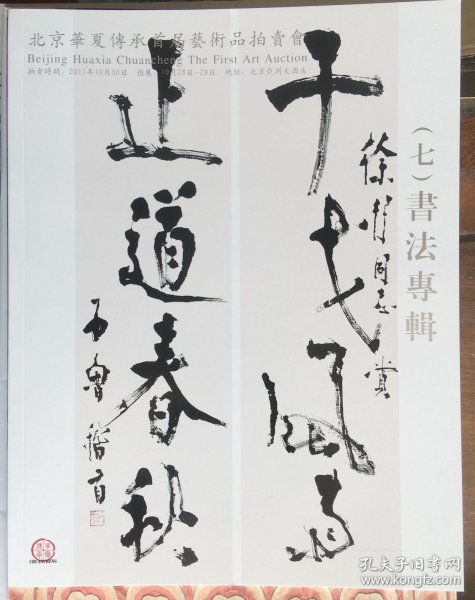 北京華夏傳承首屆藝術品拍賣會
Beijing Huaxia Chuancheng The First Art Auction
拍賣時間：2011年10月30日 預展：10月28日-29日 地址：北京亞洲大酒店
（七）書法專輯
徐 同志賞
干戈風雨
止道春秋
石魯稽首
CHUANCHENG
孔夫子旧书网